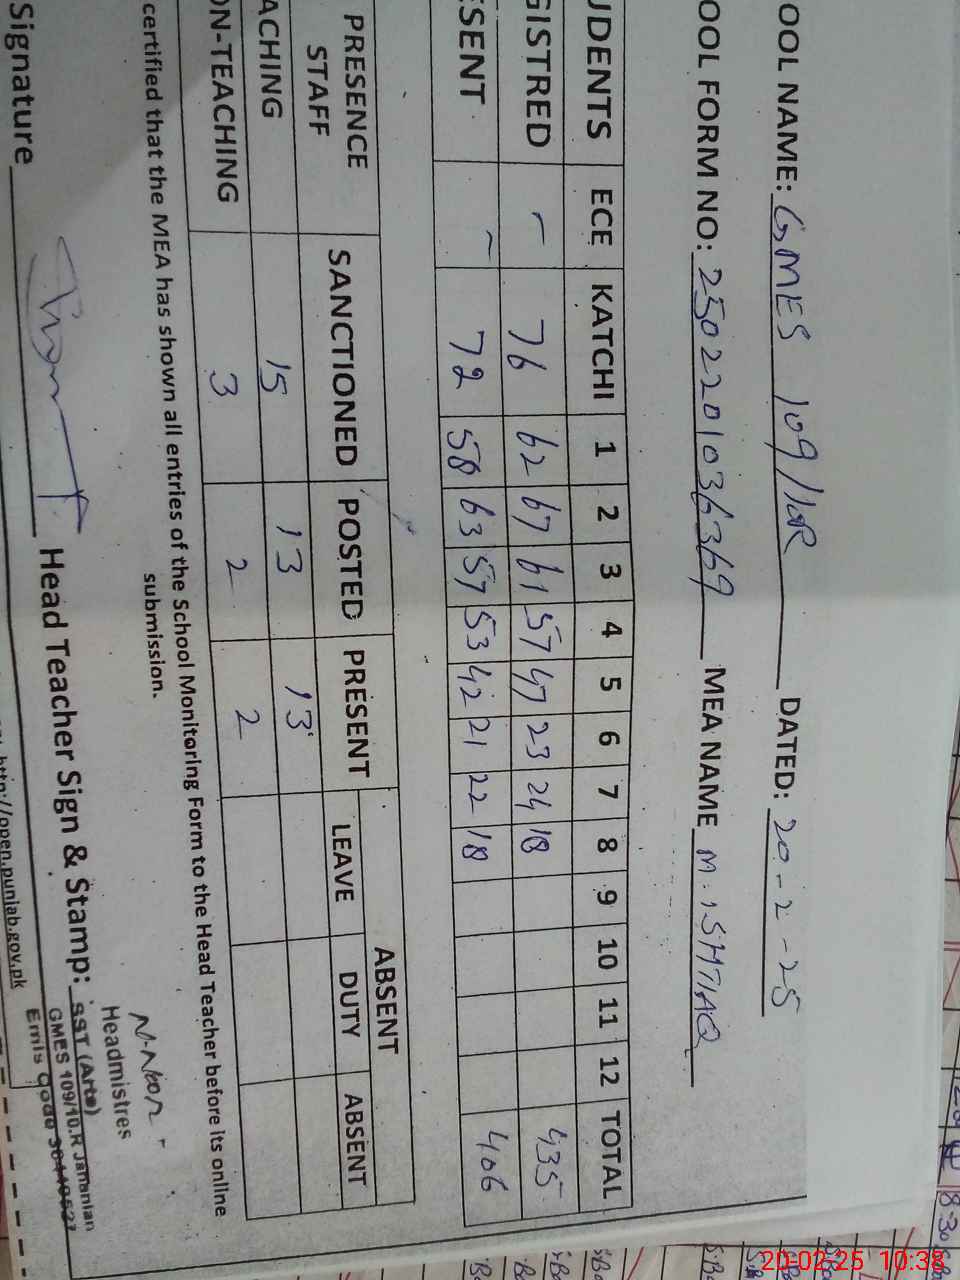 OOL NAME: GMES 109/10R DATED: 20-2-25
OOL FORM NO: 2502201036369 MEA NAME M. ISHTIAQ
UDENTS ECE KATCHI 1 2 3 4 5 6 7 8 9 10 11 12 TOTAL
GISTRED - 76 62 67 61 57 47 23 24 18 435
ESENT - 72 58 63 57 53 42 21 22 18 406
PRESENCE STAFF SANCTIONED POSTED PRESENT ABSENT
LEAVE DUTY ABSENT
ACHING 15 13 13
ON-TEACHING 3 2 2
certified that the MEA has shown all entries of the School Monitoring Form to the Head Teacher before its online
submission.
Signature Head Teacher Sign & Stamp:
N-Noor
Headmistres
SST (Arts)
GMES 109/10.R Jahanian
Emis Code
http://open.punjab.gov.pk
8:30
20-02-25 10:38